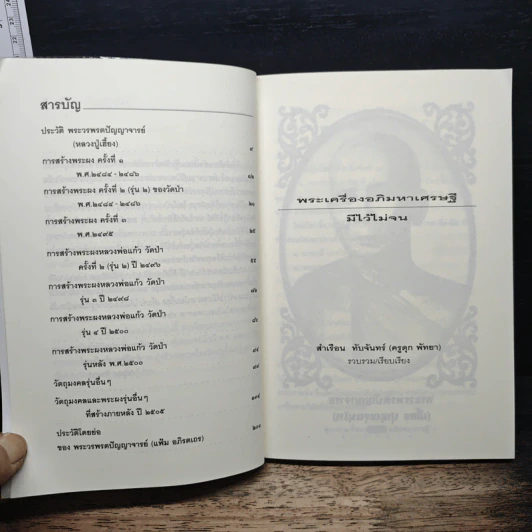 สารบัญ
ประวัติ พระวรพรตปัญญาจารย์
(หลวงปู่เฮี้ยง) ๙
การสร้างพระผง ครั้งที่ ๑
พ.ศ.๒๔๘๔ - ๒๔๘๖
การสร้างพระผง ครั้งที่ ๒ (รุ่น ๒) ของวัดป่า
พ.ศ.๒๔๘๔ - ๒๔๘๖
การสร้างพระผง ครั้งที่ ๓
พ.ศ.๒๔๙๕
การสร้างพระผงหลวงพ่อแก้ว วัดป่า
ครั้งที่ ๒ (รุ่น ๒) ปี ๒๔๙๖
การสร้างพระผงหลวงพ่อแก้ว วัดป่า
รุ่น ๓ ปี ๒๔๙๘
การสร้างพระผงหลวงพ่อแก้ว วัดป่า
รุ่น ๔ ปี ๒๕๐๐
การสร้างพระผงหลวงพ่อแก้ว วัดป่า
รุ่นหลัง พ.ศ.๒๕๐๐
วัตถุมงคลรุ่นอื่นๆ
วัตถุมงคลและพระผงรุ่นอื่นๆ
ที่สร้างภายหลัง ปี ๒๕๐๕
ประวัติโดยย่อ
ของ พระวรพรตปัญญาจารย์ (แฟ้ม อภิรตเถร)
พระเครื่องอภิมหาเศรษฐี
มีไว้ไม่จน
สำเรือน ทับจันทร์ (ครูตุก พัทยา)
รวบรวม/เรียบเรียง